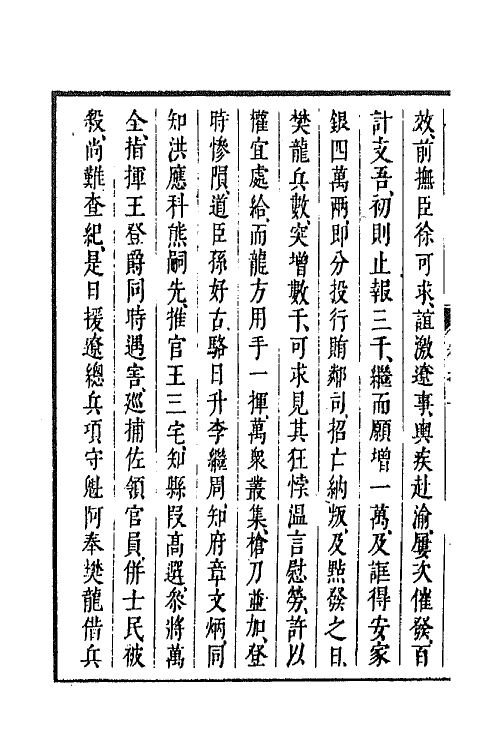 效前撫臣徐可求誼激遼事輿疾赴渝屢次催發百
計支吾初則止報三千繼而願增一萬及誆得安家
銀四萬兩即分投行賄鄰司招亡納叛及點發之日
樊龍兵數突增數千可求見其狂悖温言慰勞許以
權宜處給而龍方用手一揮萬衆叢集槍刀並加登
時慘隕道臣孫好古駱日升李繼周知府章文炳同
知洪應科熊嗣先推官王三宅知縣段高選叅將萬
全指揮王登爵同時遇害巡捕佐領官員併士民被
殺尚難查紀是日援遼總兵項守魁阿奉樊龍借兵